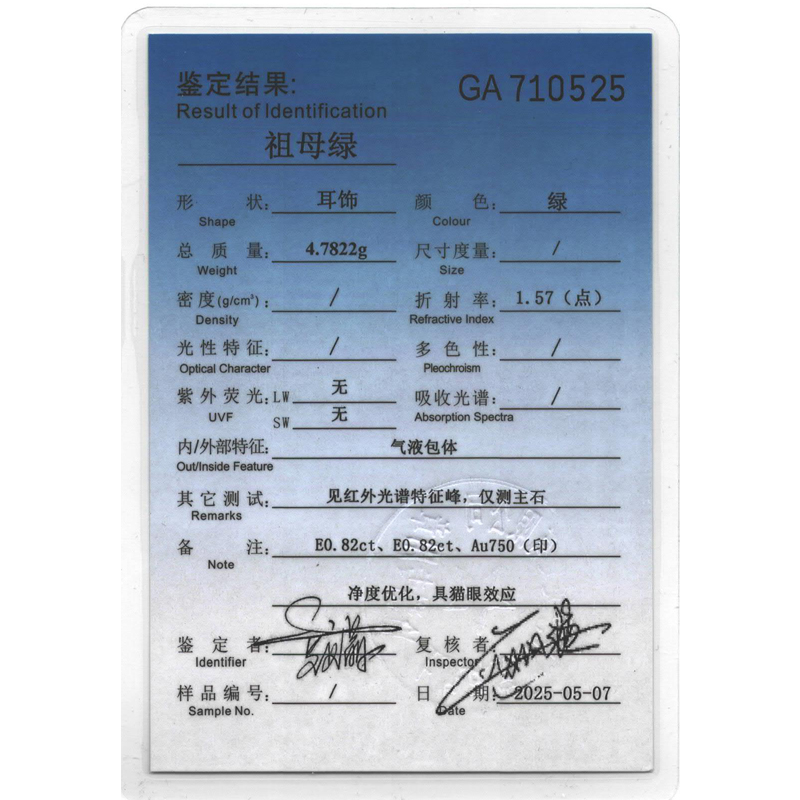 鉴定结果:
GA 710525
Result of Identification
祖母绿
形 状: 耳饰 颜 色: 绿
Shape Colour
总 质 量: 4.7822g 尺寸度量: /
Weight Size
密度(g/cm³): / 折 射 率: 1.57（点）
Density Refractive Index
光性特征: / 多 色 性: /
Optical Character Pleochroism
紫外荧光: LW 无 吸收光谱: /
UVF SW 无 Absorption Spectra
内/外部特征: 气液包体
Out/Inside Feature
其它测试: 见红外光谱特征峰，仅测主石
Remarks
备 注: E0.82ct、E0.82ct、Au750（印）
Note
净度优化，具猫眼效应
鉴 定 者: 复 核 者:
Identifier Inspector
样品编号: / 日 期: 2025-05-07
Sample No. Date